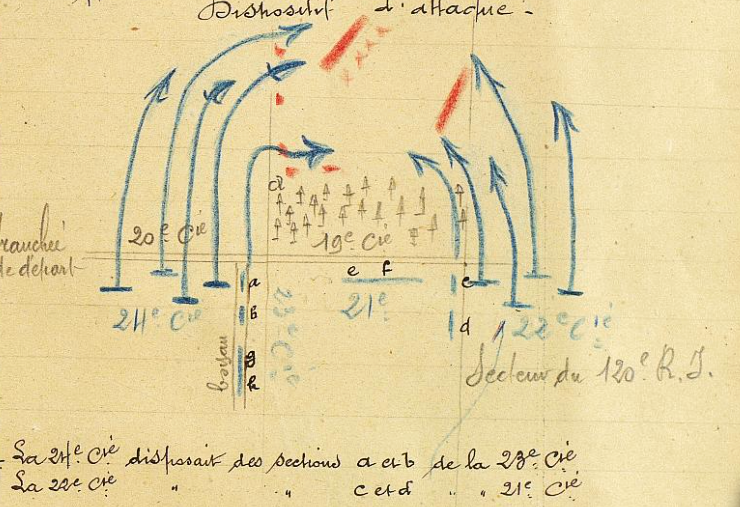 Dispositif d'attaque -
d
20e Cie 19e Cie
tranchée
de départ
e f
a c
21e
b d
24e Cie 23e Cie 22e Cie
boyau g
h
Secteur du 120e R.I.
- La 24e Cie disposait des sections a et b de la 23e Cie
La 22e Cie " " c et d " " 21e Cie